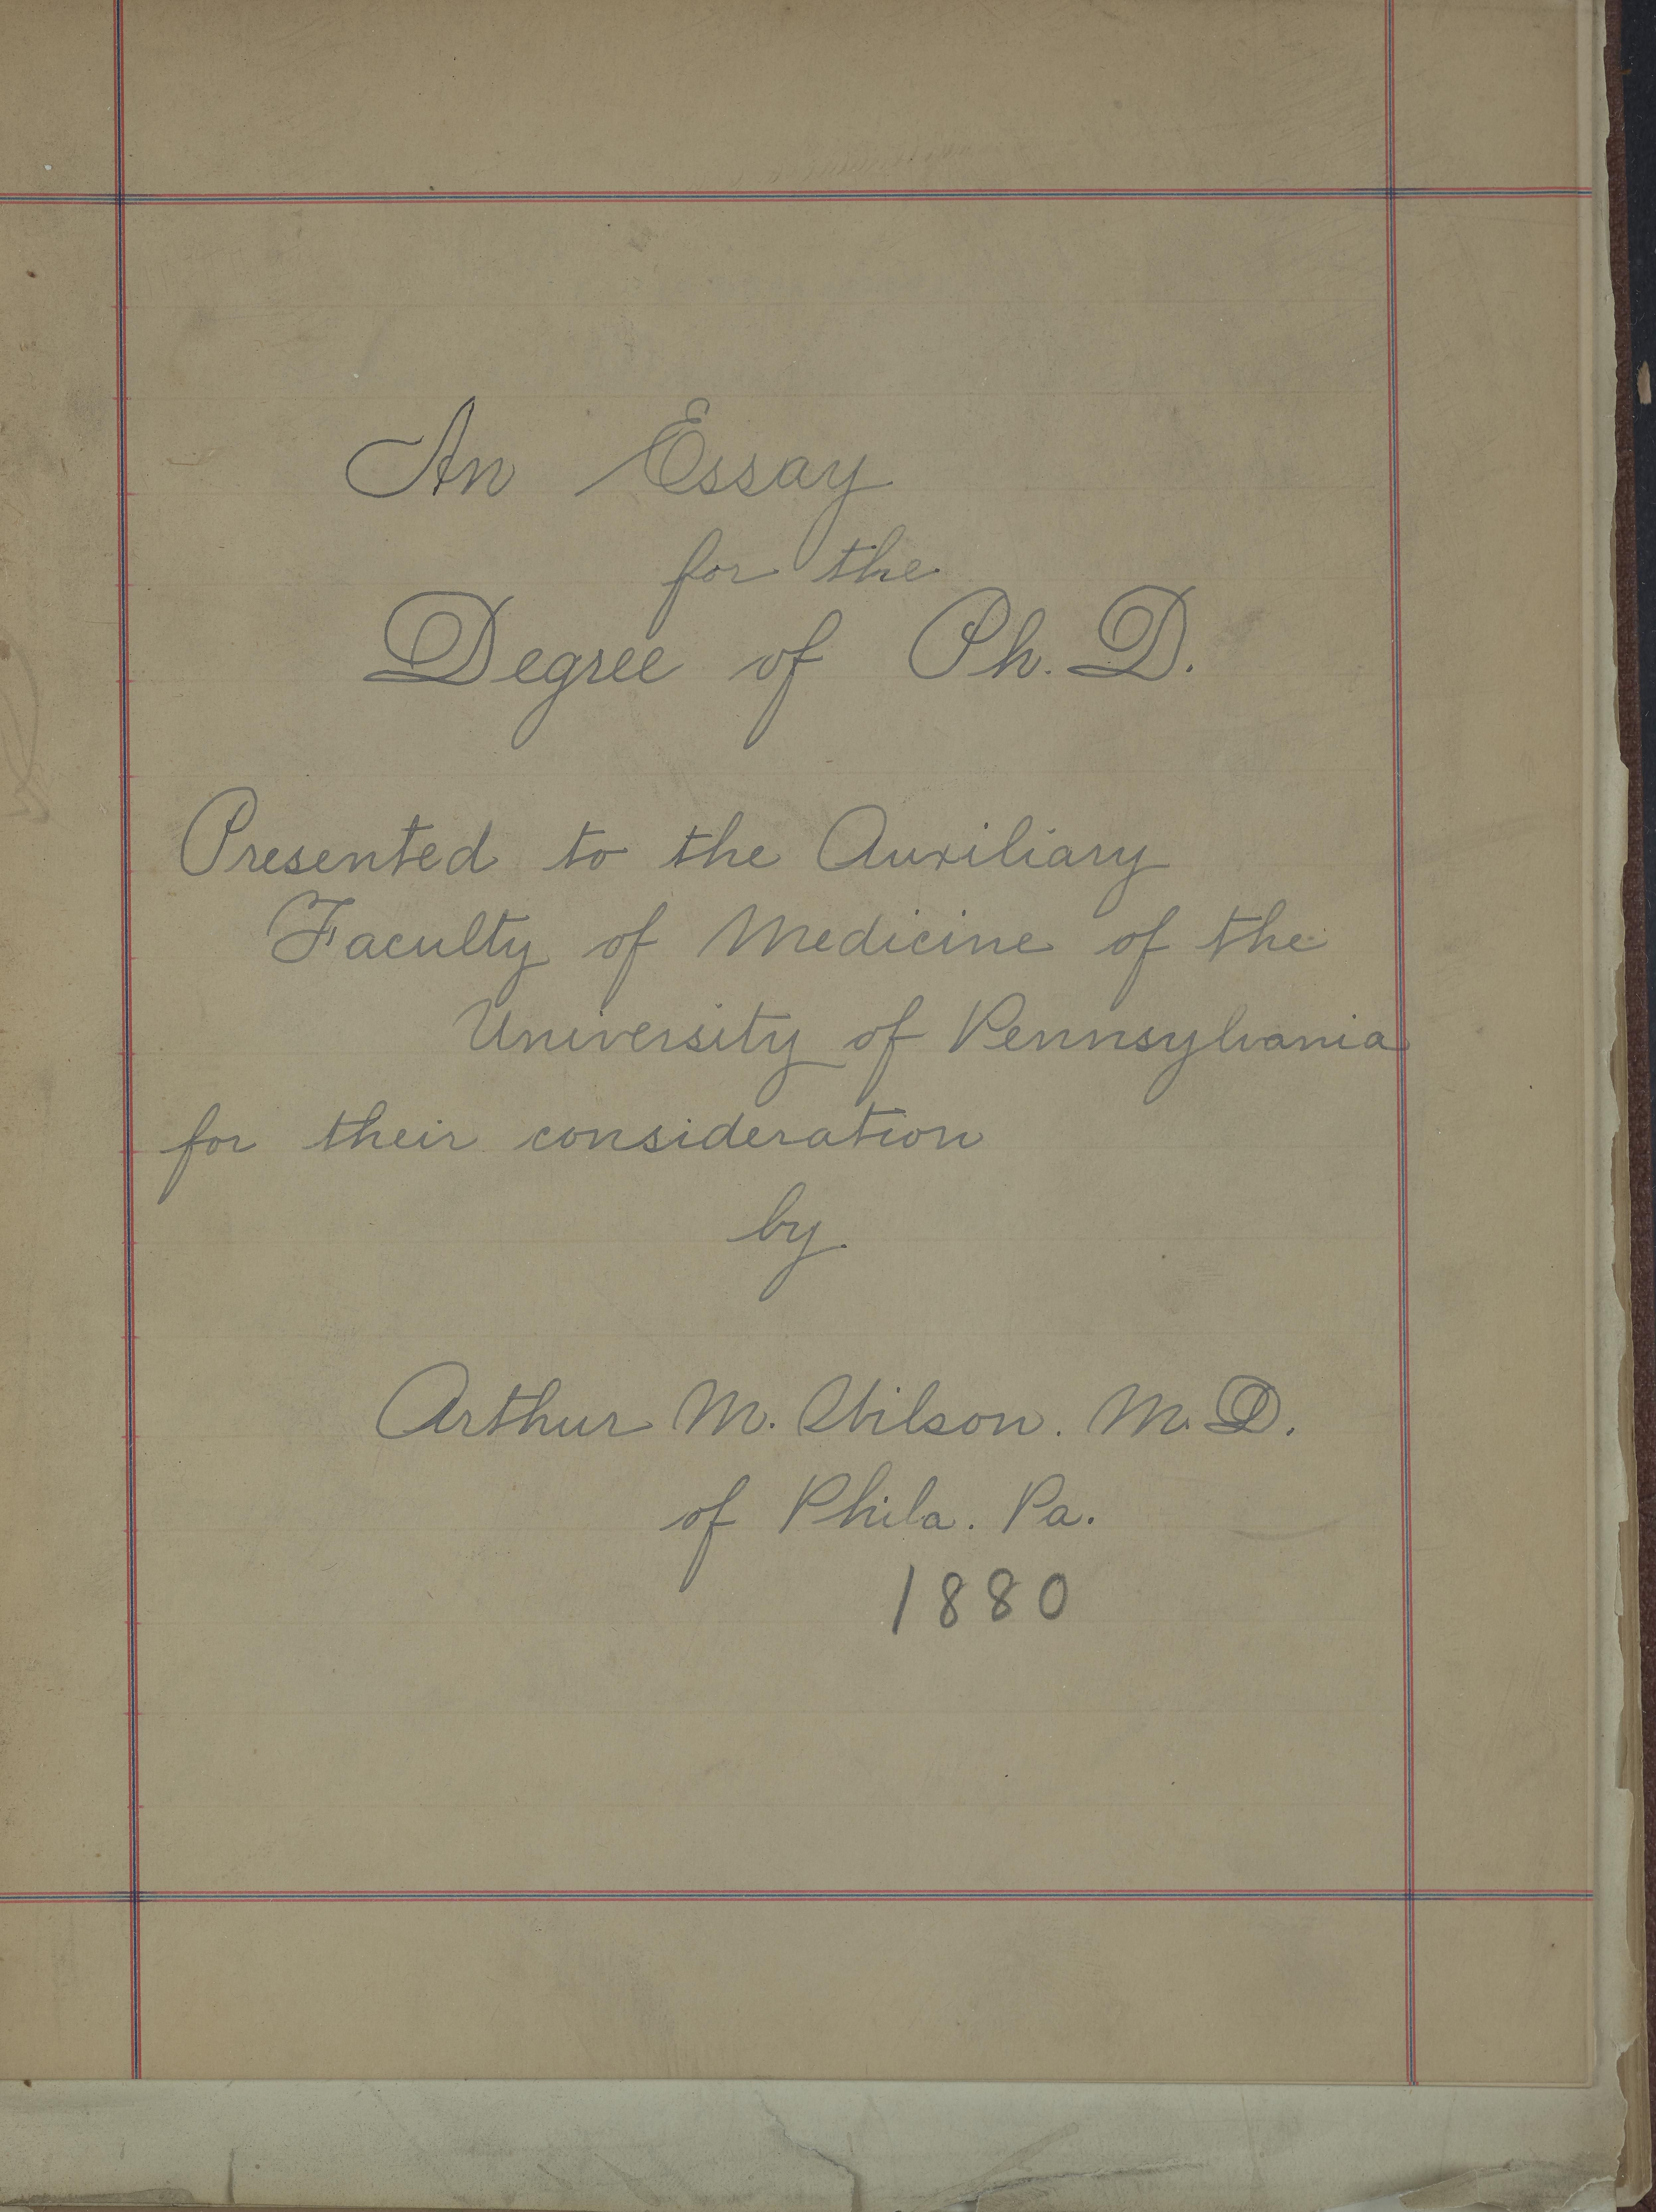 An Essay
for the
Degree of Ph. D.
Presented to the Auxiliary
Faculty of Medicine of the
University of Pennsylvania
for their consideration
by
Arthur M. Wilson. M. D.
of Phila. Pa.
1880